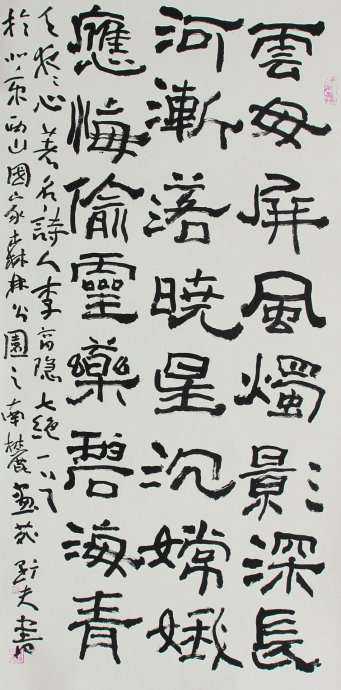 雲母屏風燭影深長
河漸落曉星沉嫦娥
應悔偷靈藥碧海青
天夜〻心著名詩人李商隐七絕一首
於北京西山國家森林公園之南麓畫苑夫書